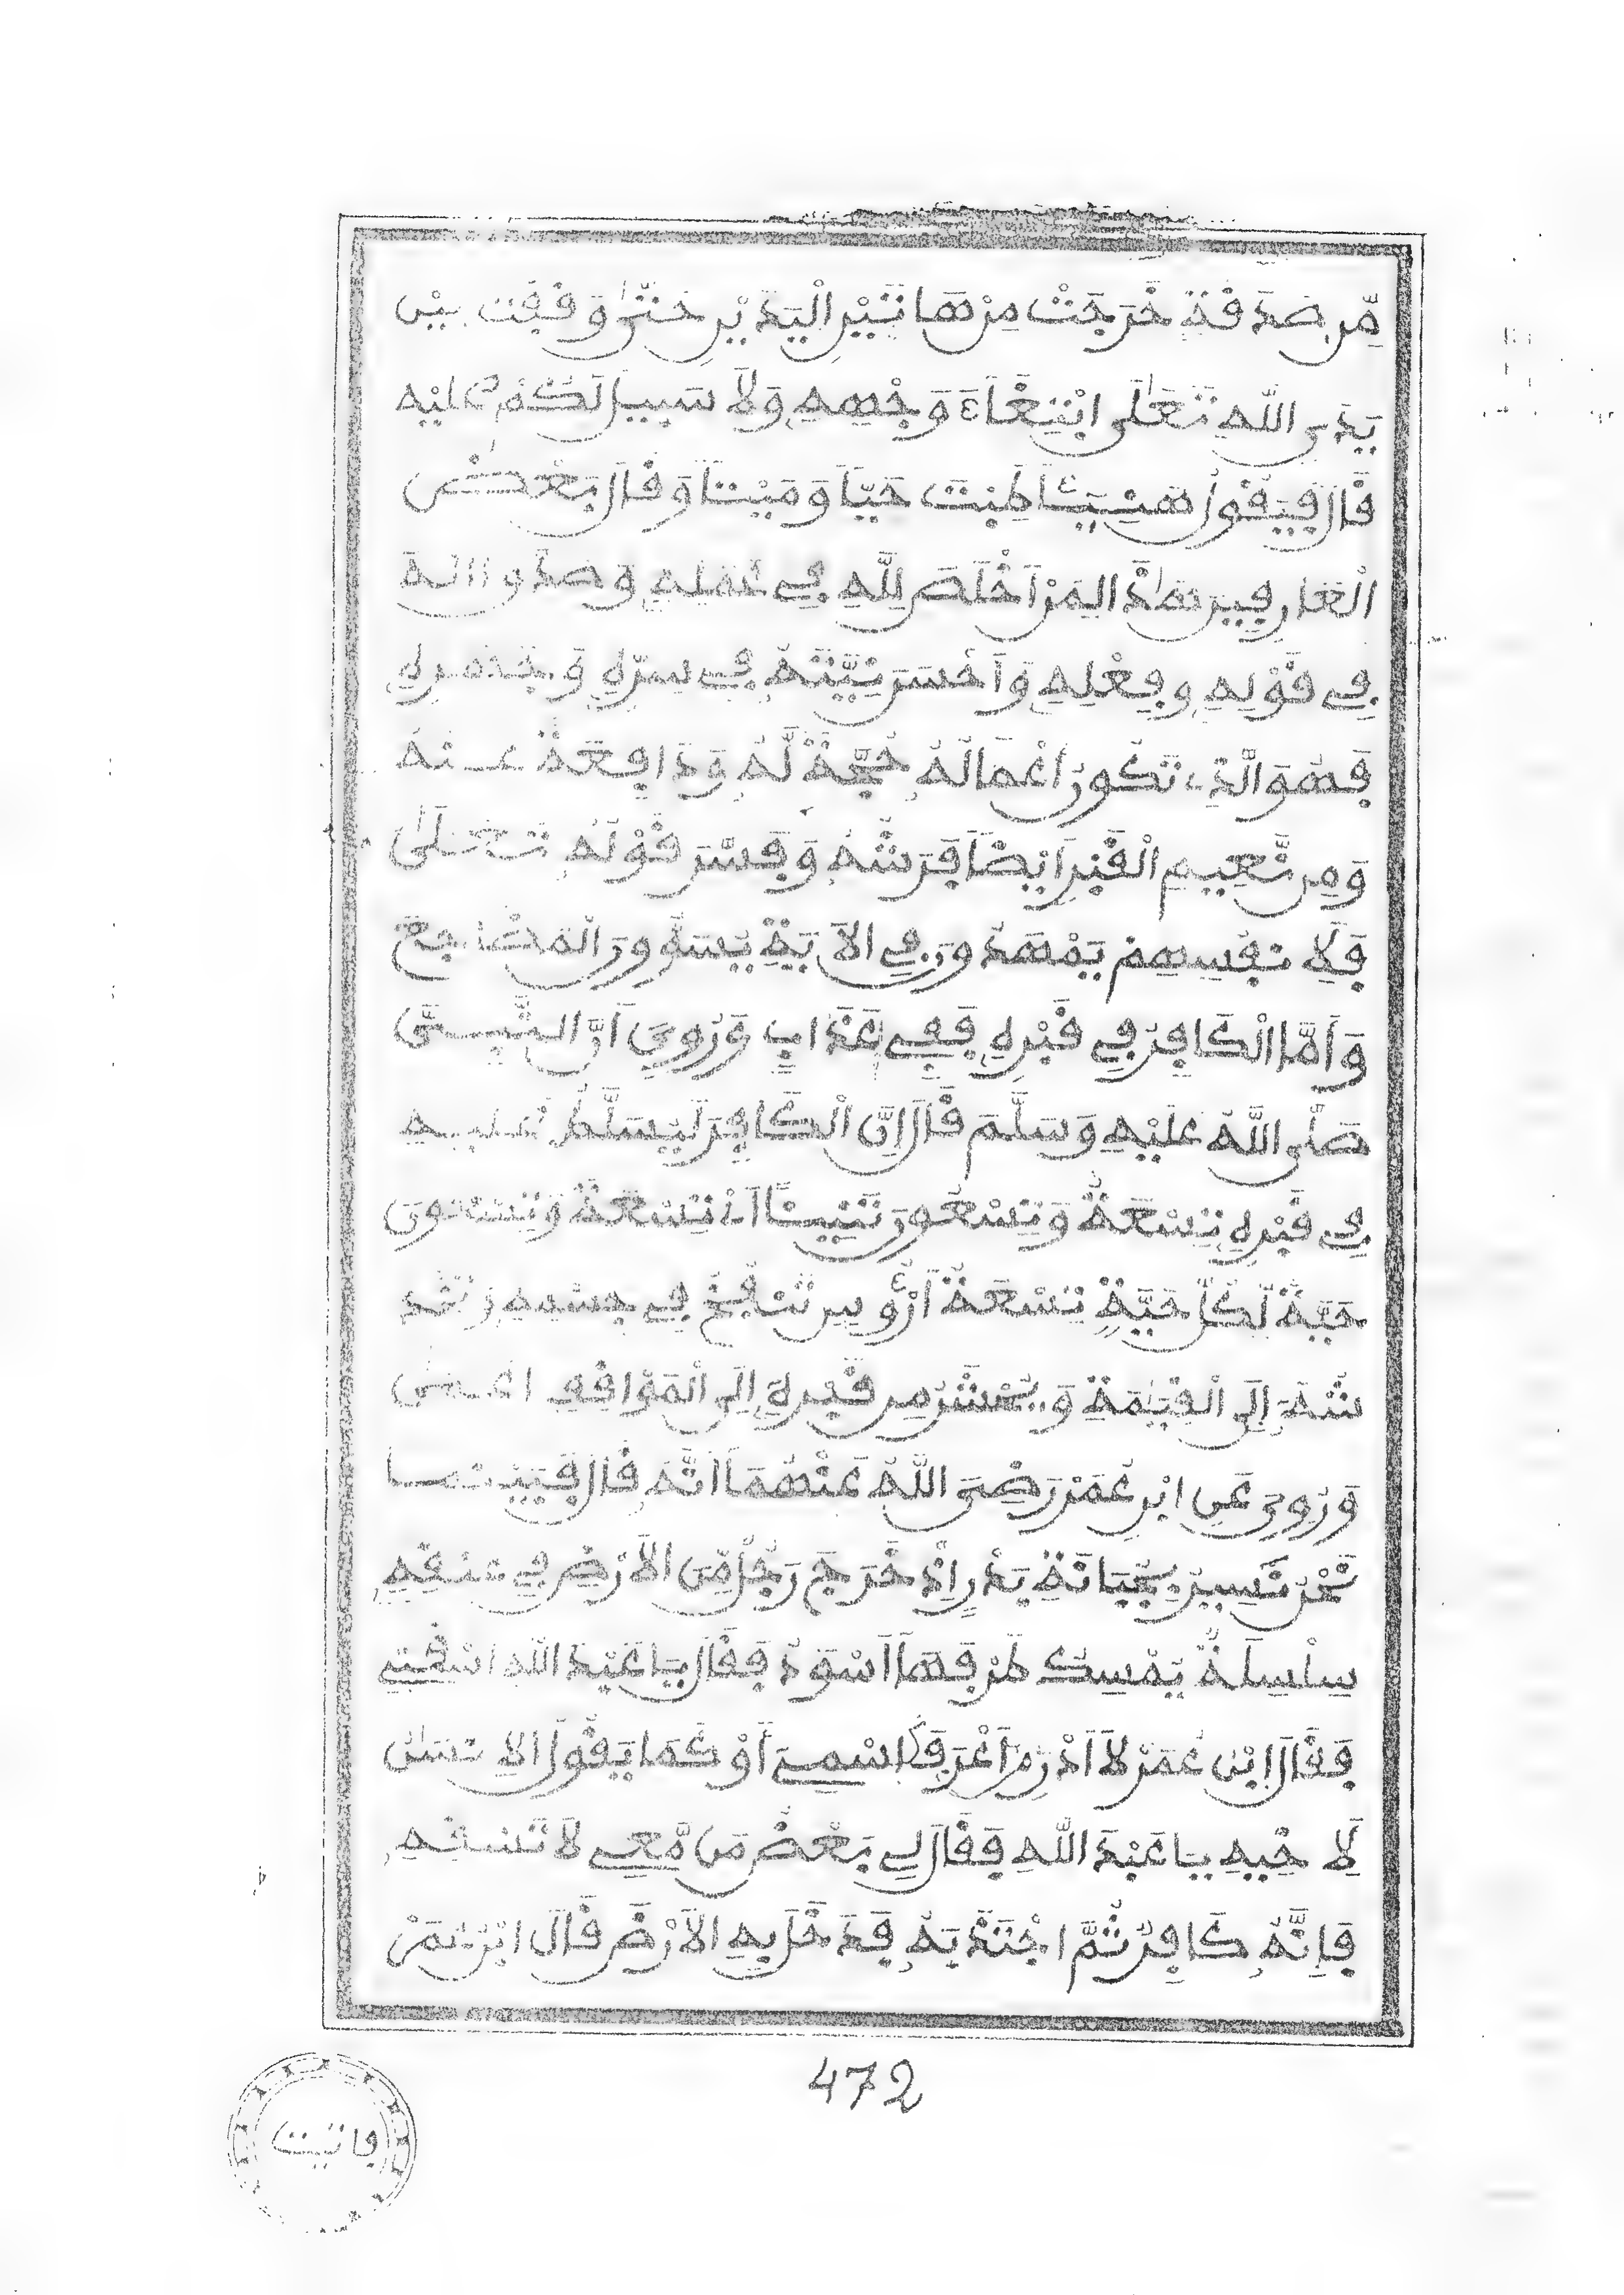 مِّن صَدَقَةٍ خَرَجَتْ مِنْ هَاتَيْنِ الْيَدَيْنِ حَتَّىٰ وَقَفَت بَيْنَ
يَدَيِ اللَّهِ تَعَٰلَى ابْتِغَآءَ وَجْهِهِ وَلَا سَبِيلَ لَكُمْ عَلَيْهِ
قَالَ فَيَقُولُ هَنِيـًٔا طِبْتَ حَيّاً وَمَيْتاً وَقَالَ بَعْضُ
الْعَارِفِينَ هَٰذَا لِمَنْ أَخْلَصَ لِلَّهِ فِي عَمَلِهِ وَصَدَقَ اللَّهَ
فِي قَوْلِهِ وَفِعْلِهِ وَأَحْسَنَ نِيَّتَهُ فِي سِرِّهِ وَجَهْرِهِ
فَهُوَ الَّذِي تَكُونُ أَعْمَالُهُ حُجَّةً لَّهُ وَدَافِعَةً عَنْهُ
وَمِن نَّعِيمِ الْقَبْرِ أَيْضاً فَرْشُهُ وَفُسِّرَ قَوْلُهُ تَعَٰلَىٰ
فَلِأَنفُسِهِمْ يَمْهَدُونَ فِي الْآيَةِ يُسَوُّونَ الْمَضَاجِعَ
وَأَمَّا الْكَافِرُ فِي قَبْرِهِ فَفِي عَذَابٍ وَرُوِيَ أَنَّ النَّبِيَّ
صَلَّى اللَّهُ عَلَيْهِ وَسَلَّمَ قَالَ إِنَّ الْكَافِرَ لَيُسَلَّطُ عَلَيْهِ
فِي قَبْرِهِ تِسْعَةٌ وَتِسْعُونَ تِنِّيناً أَيْ تِسْعَةٌ وَتِسْعُونَ
حَيَّةً لِّكُلِّ حَيَّةٍ تِسْعَةُ أَرْؤُسٍ تَنفُخُ فِي جِسْمِهِ وَتَخْدِ
شُهُ إِلَى الْقِيَٰمَةِ وَيُحْشَرُ مِن قَبْرِهِ إِلَى الْمَوْقِفِ أَعْمَىٰ
وَرُوِيَ عَنِ ابْنِ عُمَرَ رَضِيَ اللَّهُ عَنْهُمَا أَنَّهُ قَالَ فَبَيْنَمَا
نَحْنُ نَسِيرُ بِجَبَّانَةِ بَدْرٍ إِذْ خَرَجَ رَجُلٌ مِّنَ الْأَرْضِ فِي عُنُقِهِ
سِلْسِلَةٌ يُمْسِكُ طَرْفَهَا أَسْوَدُ فَقَالَ يَا عَبْدَ اللَّهِ اسْقِنِي
فَقَالَ ابْنُ عُمَرَ لَا أَدْرِي أَعَرَفَ اسْمِي أَوْ كَمَا يَقُولُ الْإِنسَانُ
لِأَخِيهِ يَا عَبْدَ اللَّهِ فَقَالَ لِي بَعْضُ مَن مَّعِي لَا تَسْقِهِ
فَإِنَّهُ كَافِرٌ ثُمَّ اجْتَذَبَهُ فَدَخَلَ بِهِ الْأَرْضَ قَالَ ابْنُ عُمَرَ
472